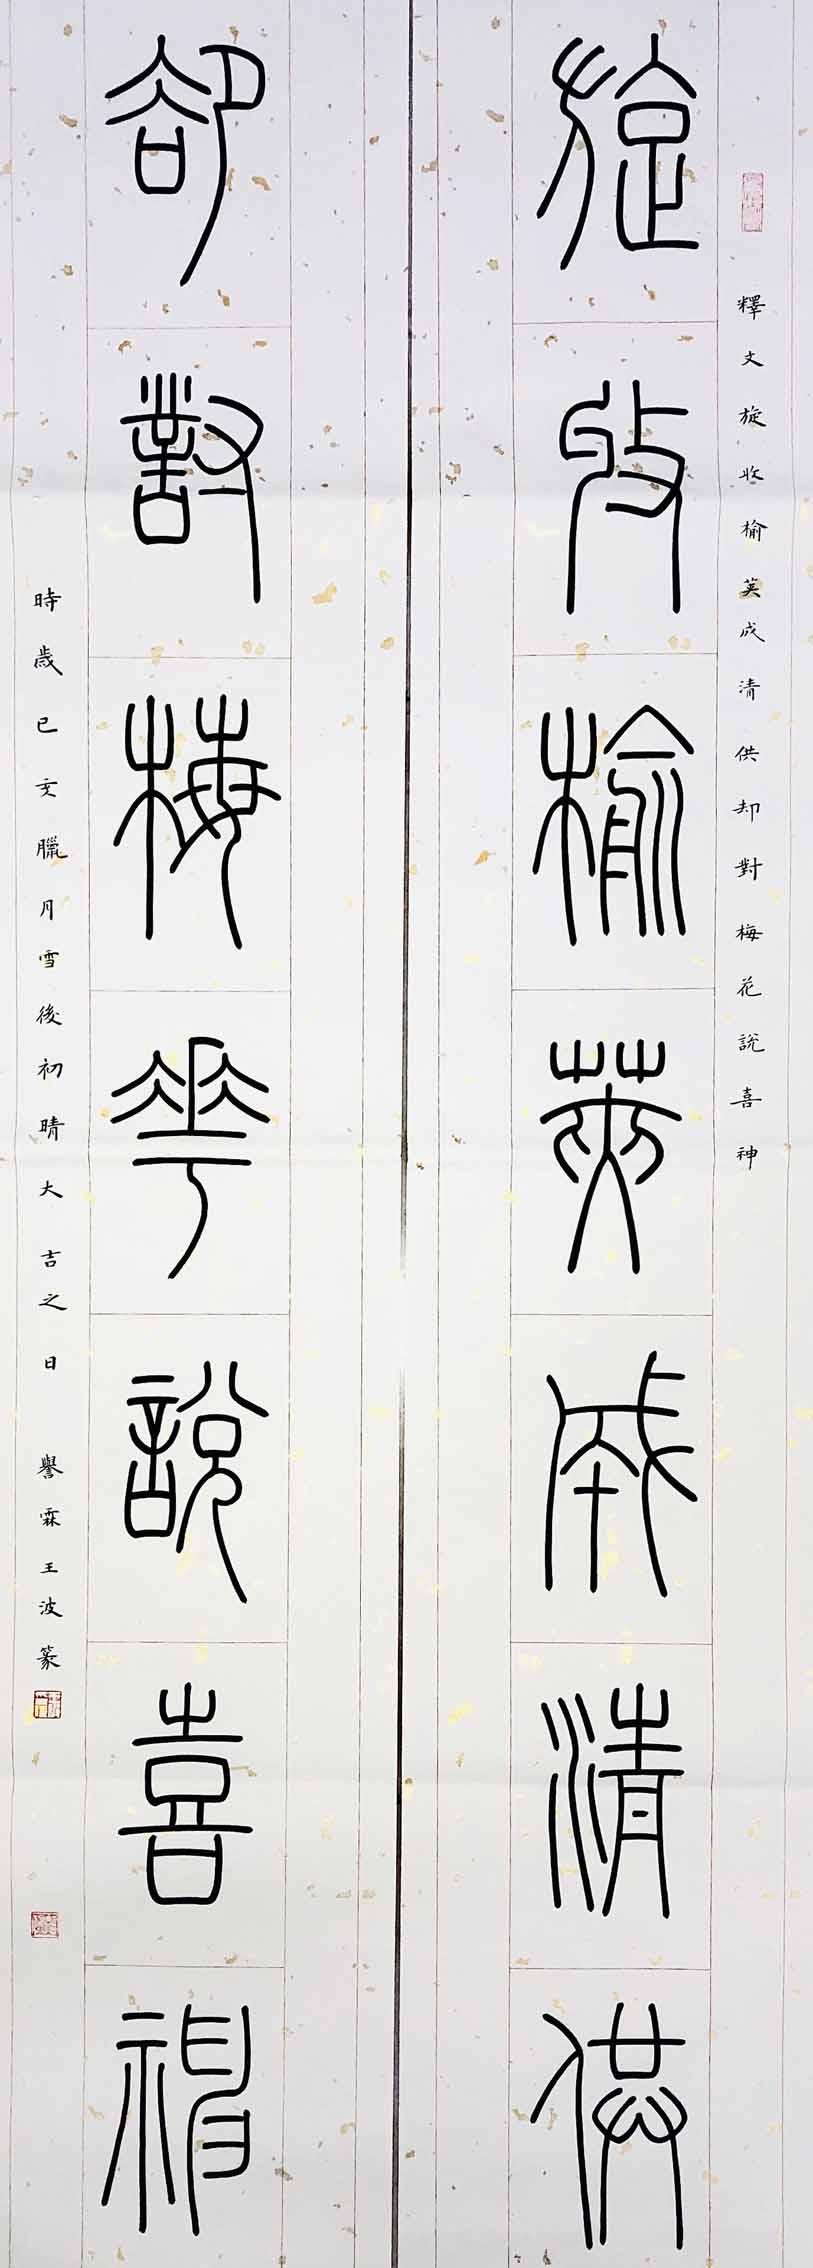 釋文旋收榆莢成清供却對梅花說喜神
旋收榆莢成清供
却對梅華說喜神
時歲己亥臘月雪後初晴大吉之日 譽霖王波篆